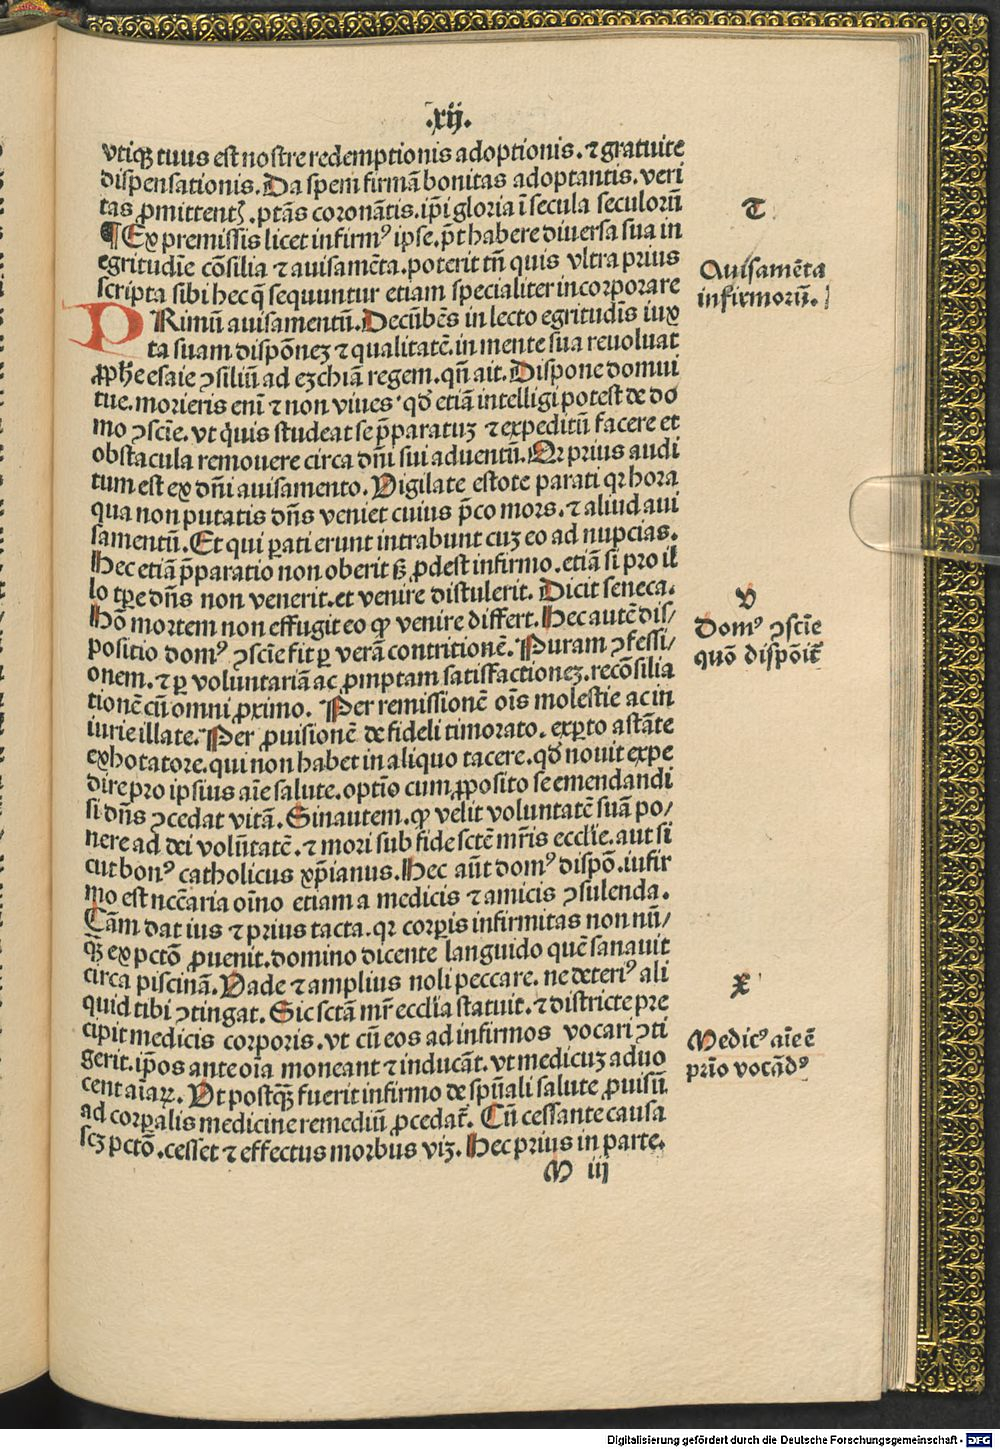 .xij.
vtiqȝ tuus est nostre redemptionis adoptionis. ⁊ gratuite
dispensationis. Da spem firmā bonitas adoptantis. veri
tas ꝓmittentꝭ. ptās coronātis. ip̄i gloria ī secula seculorū
T
¶ Ex premissis licet infirmꝰ ipse. p̄t habere diuersa sua in
egritudīe cōsilia ⁊ auisamēta. poterit tn̄ quis vltra prius
scripta sibi hec q̄ sequuntur etiam specialiter incorporare
Auisamēta
infirmorū.
PRimū auisamentū. Decūbēs in lecto egritudīs iux
ta suam dispōneȝ ⁊ qualitatē. in mente sua reuoluat
ꝓph̄e esaie ꝯsiliū ad eȝchiā regem. qn̄ ait. Dispone domui
tue. morieris enī ⁊ non viues. qd̄ etiā intelligi potest de do
mo ꝯscīe. vt quis studeat se p̄paratuȝ ⁊ expeditū facere et
obstacula remouere circa dn̄i sui aduentū. Qꝛ prius audi
tum est ex dn̄i auisamento. Vigilate estote parati qꝛ hora
qua non putatis dn̄s veniet cuius p̄co mors. ⁊ aliud aui
samentū. Et qui ꝑati erunt intrabunt cuȝ eo ad nupcias.
Hec etiā p̄paratio non oberit sꝫ ꝓdest infirmo. etiā si pro il
lo tꝑe dn̄s non venerit. et venire distulerit. Dicit seneca.
Hō mortem non effugit eo ꝙ venire differt. Hec autē dis/
positio domꝰ ꝯscīe fit ꝑ verā contritionē. Puram ꝯfessi/
onem. ⁊ ꝑ voluntariā ac ꝓmptam satisfactioneȝ. recōsilia
V
Domꝰ ꝯscīe
quō dispōit̄
tionē cū omni ꝓximo. Per remissionē oīs molestie ac in
iurie illate. Per ꝓuisionē de fideli timorato. exꝑto astāte
exhotatore. qui non habet in aliquo tacere. qd̄ nouit expe
dire pro ipsius aīe salute. optīo cum ꝓposito se emendandi
si dn̄s ꝯcedat vitā. Sinautem. ꝙ velit voluntatē suā po/
nere ad dei volūtatē. ⁊ mori sub fide sctē mr̄is ecclīe. aut si
cut bonꝰ catholicus xp̄ianus. Hec aūt domꝰ dispō. iufir
mo est nccēaria oīno etiam a medicis ⁊ amicis ꝯsulenda.
Cām dat ius ⁊ prius tacta. qꝛ corꝑis infirmitas non nū/
qȝ̄ ex pctō ꝓuenit. domino dicente languido quē sanauit
circa piscinā. Vade ⁊ amplius noli peccare. ne deteriꝰ ali
quid tibi ꝯtingat. Sic sctā mr̄ ecclīa statuit. ⁊ districte pre
X
cipit medicis corporis. vt cū eos ad infirmos vocari ꝯti
gerit. ip̄os ante oīa moneant ⁊ inducāt. vt medicuȝ aduo
Medicꝰ aīe ē
prīo vocādꝰ
cent aīaꝝ. Vt postqȝ̄ fuerit infirmo de spūali salute ꝓuisū
ad corꝑalis medicine remediū ꝓcedat̄. Cū cessante causa
scȝ pctō. cesset ⁊ effectus morbus viȝ. Hec prius in parte.
M iij
Digitalisierung gefördert durch die Deutsche Forschungsgemeinschaft - DFG